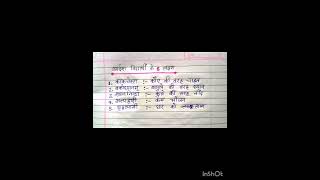 आदर्श विद्यार्थी के 5 लक्षण
1. काकचेष्टा :- कौए की तरह चेष्टा
2. बकोध्यानम् :- बगुले की तरह ध्यान
3. श्वाननिद्रा :- कुत्ते की तरह नींद
4. अल्पाहारी :- कम भोजन
5. गृहत्यागी :- घर को
InShOt